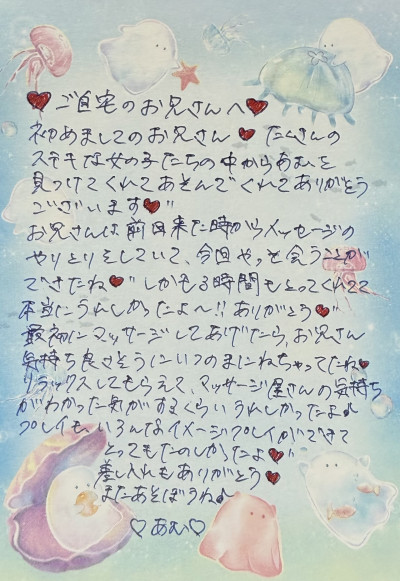 ♥ご自宅のお兄さんへ♥
初めましてのお兄さん♥ たくさんの
ステキな女の子たちの中からあむを
見つけてくれてあそんでくれてありがとう
ございます♥
お兄さんは前回来た時からメッセージの
やりとりをしていて、今回やっと会うことが
できたね♥ しかも3時間もとってくれてて
本当にうれしかったよ〜!! ありがとう♥
最初にマッサージしてあげたら、お兄さん
気持ち良さそうにいつのまにねちゃってたね♥
リラックスしてもらえて、マッサージ屋さんの気持ち
がわかった気がするくらいうれしかったよ♪
プレイも、いろんなイメージプレイができて
とってもたのしかったよ♥
差し入れもありがとう♥
またあそぼうね♪
♡あむ♡